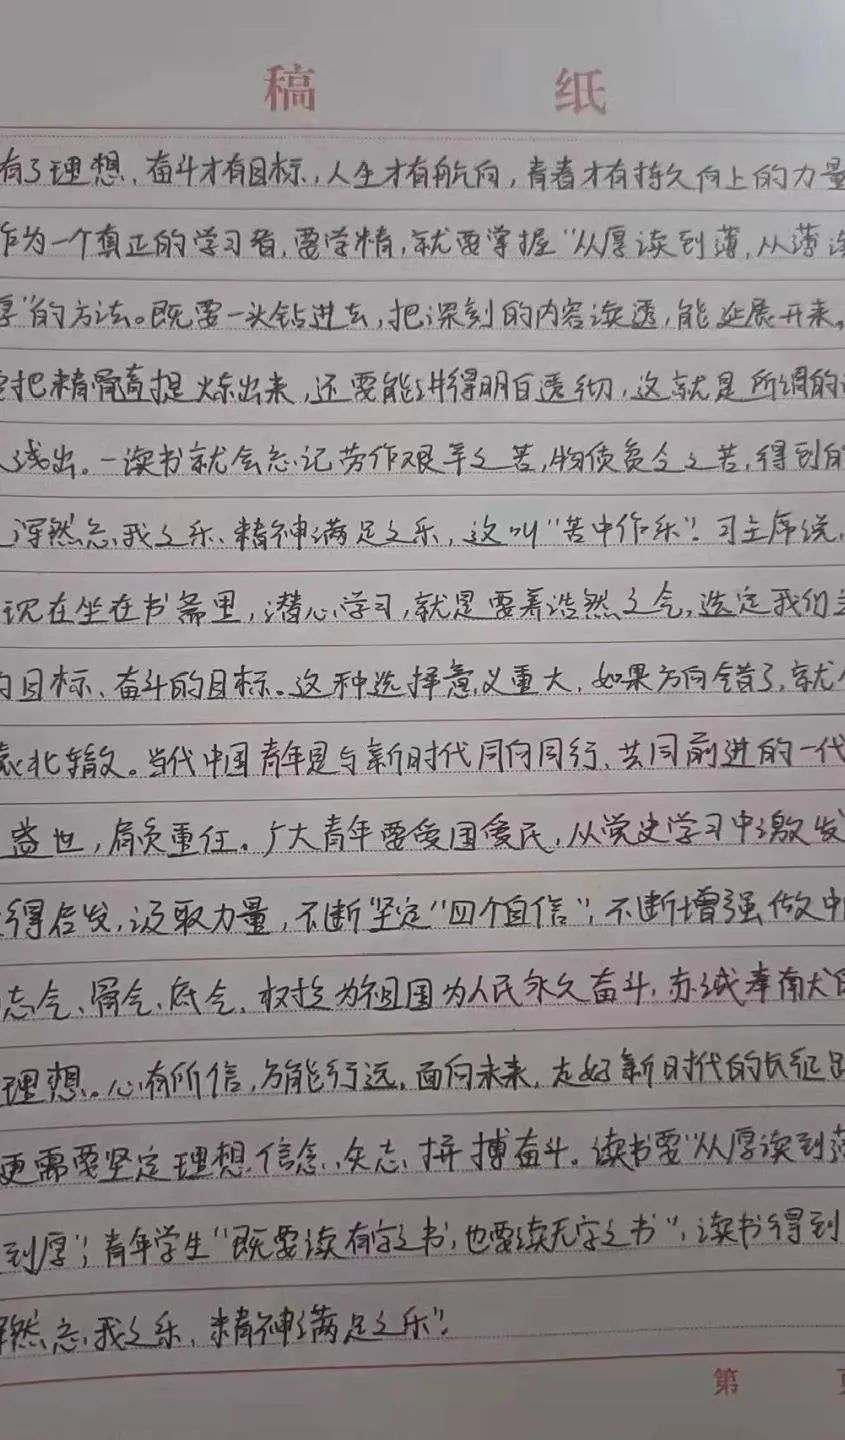 稿 纸
有了理想、奋斗才有目标，人生才有航向，青春才有持久向上的力量
作为一个真正的学习者，要学精，就要掌握“从厚读到薄，从薄读
厚”的方法。既要一头钻进去，把深刻的内容读透，能延展开来。
把精髓直提炼出来，还要能讲得明白透彻，这就是所谓的
浅出。一读书就会忘记劳作艰辛之苦，物质贫乏之苦，得到的
浑然忘我之乐、精神满足之乐，这叫“苦中作乐”。习主席说，
现在坐在书斋里，潜心学习，就是要养浩然之气，选定我们
的目标、奋斗的目标。这种选择意义重大，如果方向错了，就
辕北辙。当代中国青年是与新时代同向同行、共同前进的一代
盛世，肩负重任。广大青年要爱国爱民，从党史学习中激发
得启发，汲取力量，不断坚定“四个自信”，不断增强做中
志气、骨气、底气，树立为祖国为人民永久奋斗，赤诚奉献的
理想。心有所信，方能行远。面向未来，走好新时代的长征路
更需要坚定理想信念、矢志拼搏奋斗。读书要“从厚读到薄
到厚”；青年学生“既要读有字之书，也要读无字之书”，读书得到
浑然忘我之乐、精神满足之乐”。
第